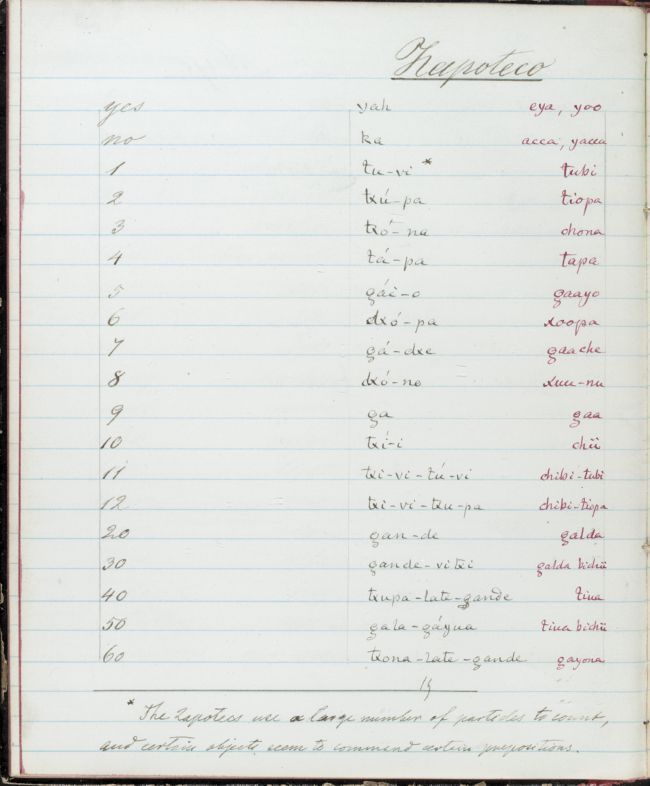 Zapoteco
yes yah eya, yoo
no ka acca, yacca
1 tu-vi * tubi
2 txú-pa tiopa
3 txó-na chona
4 tá-pa tapa
5 gái-o gaayo
6 dxó-pa xoopa
7 gá-dxe gaache
8 dxó-no xuu-nu
9 ga gaa
10 txí-i chii
11 txi-vi-tú-vi chibi-tubi
12 txi-vi-txu-pa chibi-tiopa
20 gan-de galda
30 gande-vitxi galda bichii
40 txupa-late-gande tiua
50 gala-gáyua tiua bichii
60 txona-late-gande gayona
* The Zapotecs use a large number of particles to count,
and certain objects seem to command certain prepositions.